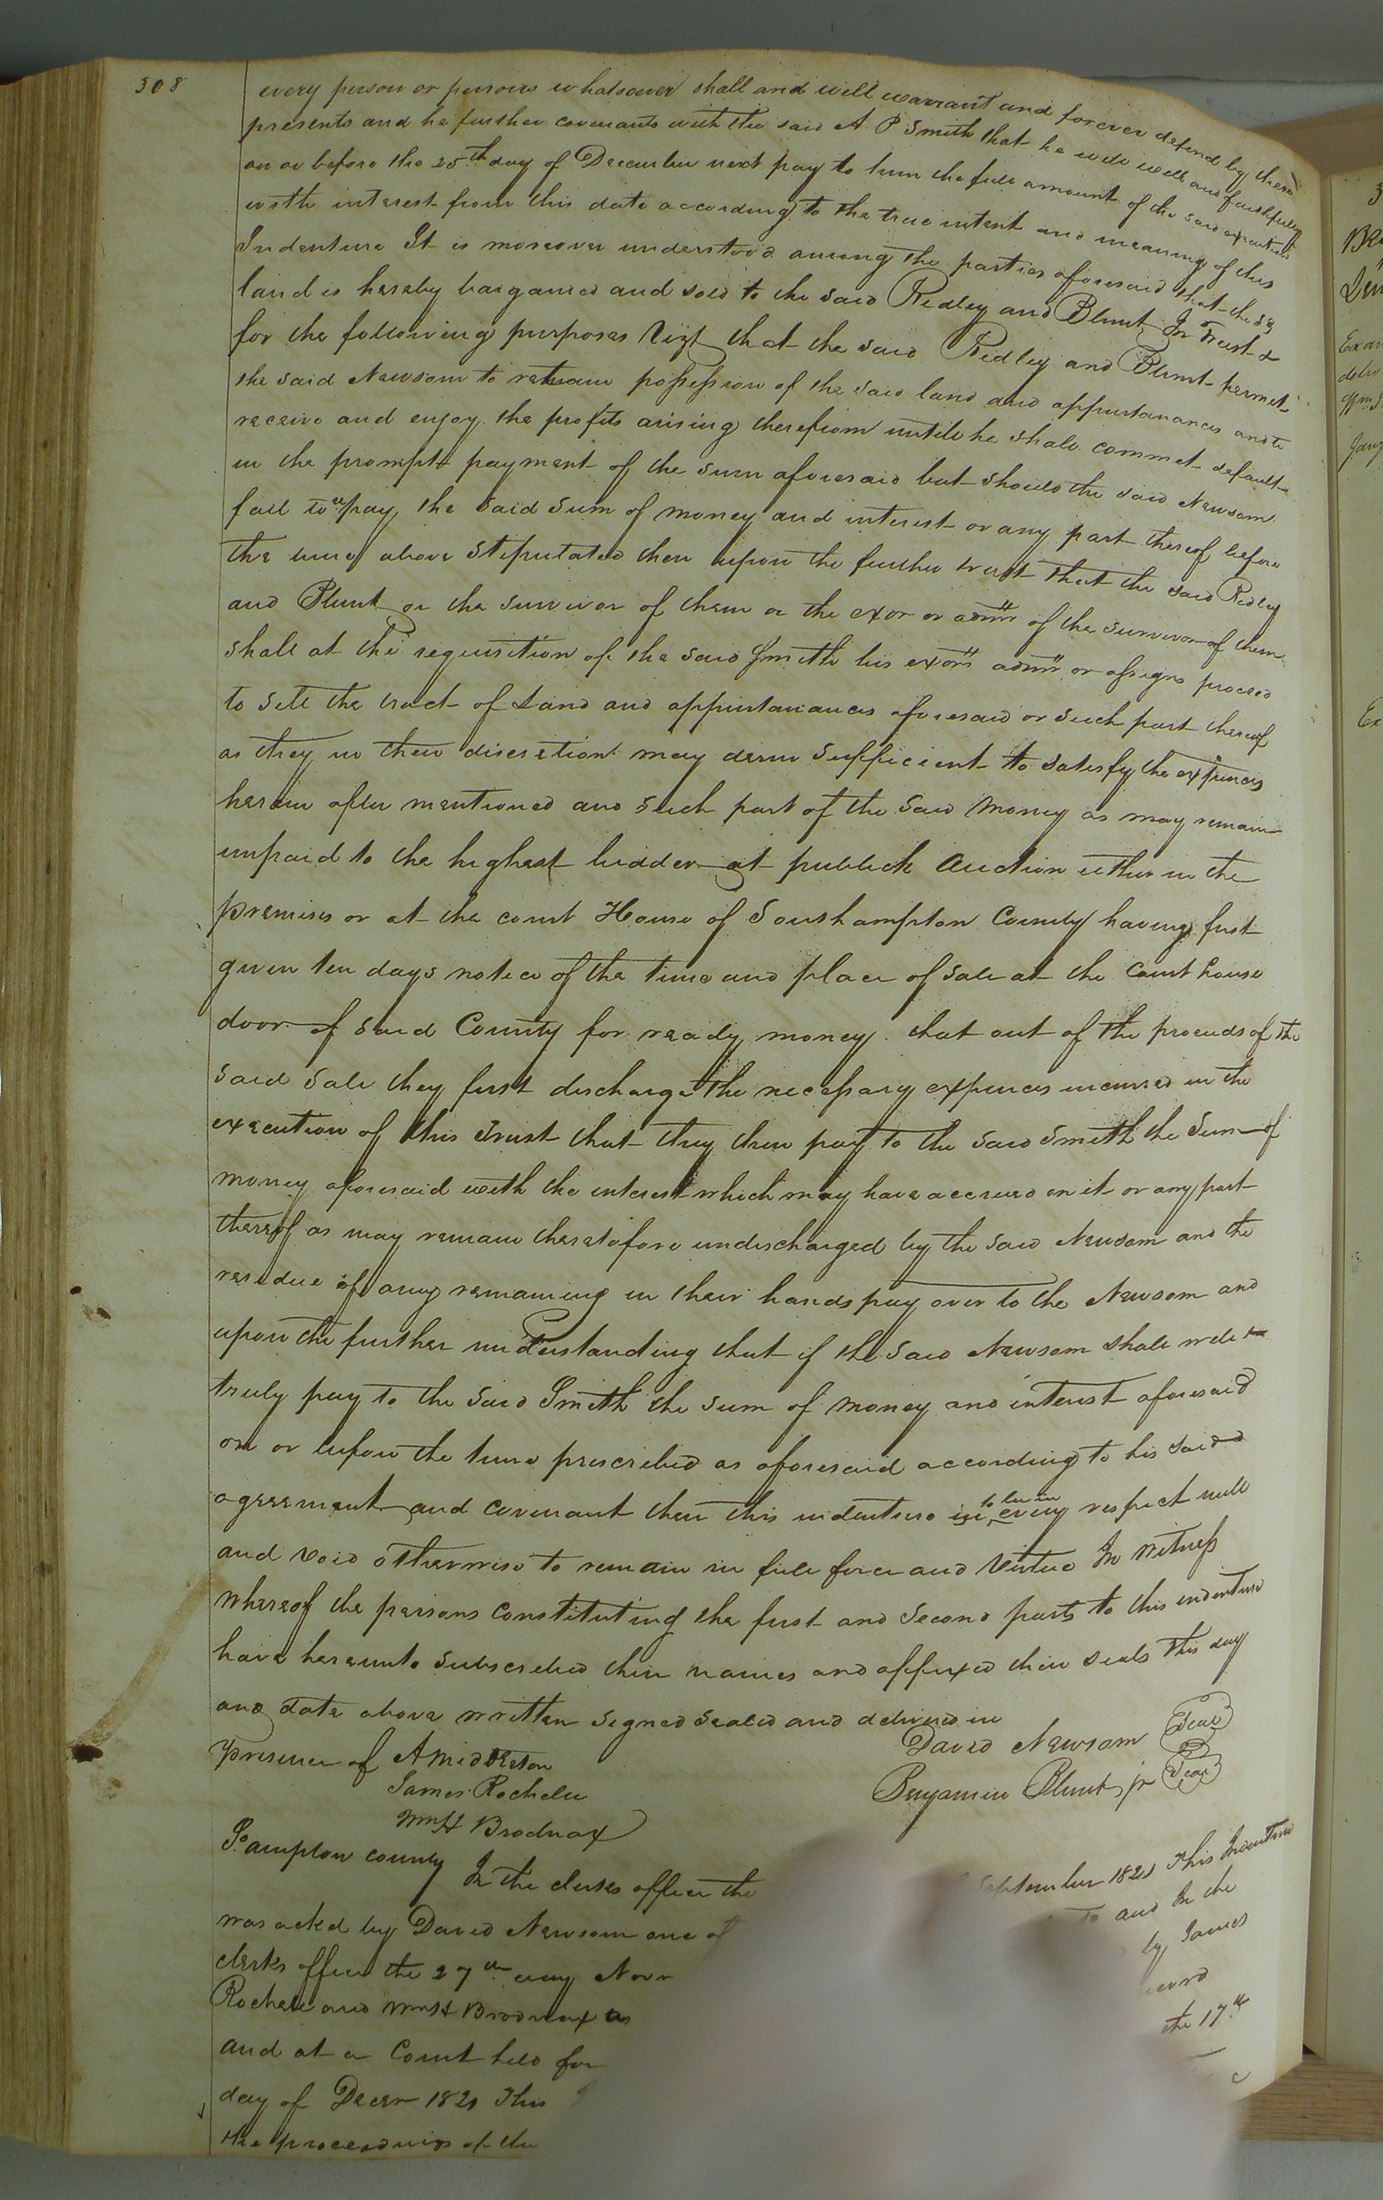 308
every person or persons whatsoever shall and will warrant and forever defend by these
presents and he further covenants with the said A P Smith that he will well and faithfully
on or before the 25th day of December next pay to him the full amount of the said executions
with interest from this date according to the true intent and meaning of this
Indenture It is moreover understood among the parties aforesaid that the sd
land is hereby bargained and sold to the said Ridley and Blunt In Trust &
for the following purposes Vizt that the said Ridley and Blunt permit
the said Newsom to retain possession of the said land and appurtanances and to
receive and enjoy the profits arising therefrom untill he shall commet default
in the prompt payment of the sum aforesaid but should the said Newsom
fail to pay the said sum of money and interest or any part thereof before
the time above stipulated then upon the further trust that the said Ridley
and Blunt or the survivor of them or the exor or admr of the survivor of them
shall at the requisition of the said Smith his exors admrs or assigns proceed
to sell the tract of Land and appurtanances aforesaid or such part thereof
as they in their discretion may deem sufficient to satisfy the expences
herein after mentioned and such part of the said money as may remain
unpaid to the highest bidder at publick auction either in the
premises or at the court House of Southampton County having first
given ten days notice of the time and place of sale at the court house
door of said County for ready money that out of the proceeds of the
said sale they first discharge the necessary expences incurred in the
execution of this Trust that they then pay to the said Smith the Sum of
money aforesaid with the interest which may have accrued on it or any part
thereof as may remain theretofore undischarged by the said Newsom and the
residue if any remaining in their hands pay over to the Newsom and
upon the further understanding that if the said Newsom shall well &
truly pay to the said Smith the sum of money and interest aforesaid
on or before the time prescribed as aforesaid according to his said
agreement and covenant then this indenture to be in every respect null
and void otherwise to remain in full force and Virtue In Witness
whereof the persons constituting the first and second parts to this indenture
have hereunto subscribed their names and affixed their seals this day
and date above written signed sealed and delivered in
presence of A Middleton David Newsom Seal
James Rochelle Benjamin Blunt jr Seal
Wm H Brodnax
So.ampton county In the clerks office the September 1821 This Indenture
was ackd by David Newsom one of to and In the
clerks office the 27th day Nov by James
Rochelle and Wm H Brodnax
and at a Court held for the 17th
day of Decer 1821 This
the proceedings of the